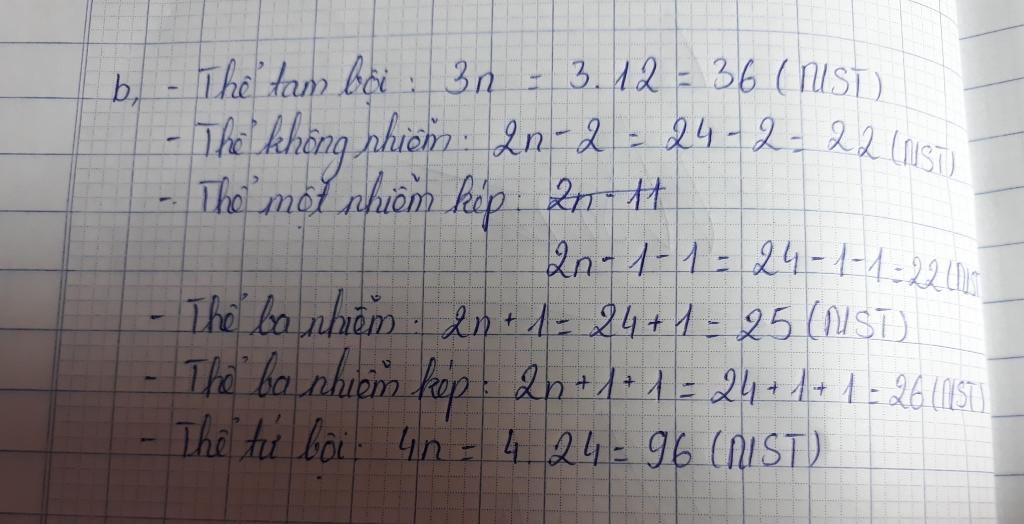 b, - Thể tam bội : 3n = 3.12 = 36 (NST)
- Thể không nhiễm : 2n - 2 = 24 - 2 = 22 (NST)
- Thể một nhiễm kép : 2n - 11
2n - 1 - 1 = 24 - 1 - 1 = 22 (NST
- Thể ba nhiễm : 2n + 1 = 24 + 1 = 25 (NST)
- Thể ba nhiễm kép : 2n + 1 + 1 = 24 + 1 + 1 = 26 (NST)
- Thể tứ bội : 4n = 4 24 = 96 (NST)